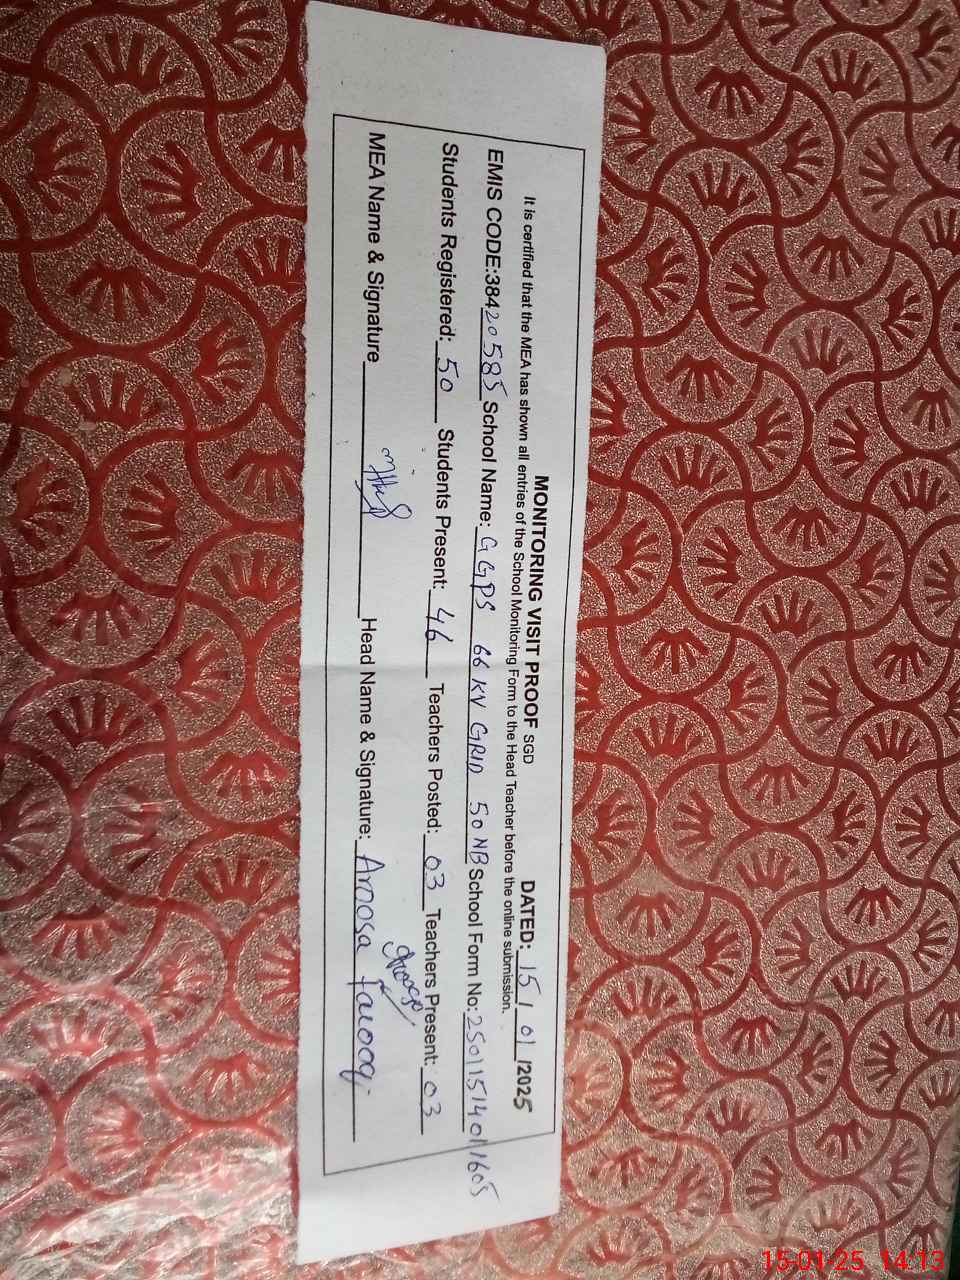 MONITORING VISIT PROOF SGD DATED: 15 / 01 /2025
It is certified that the MEA has shown all entries of the School Monitoring Form to the Head Teacher before the online submission.
EMIS CODE:38420585 School Name: GGPS 66 KV GRID 50 NB School Form No: 25011514011605
Students Registered: 50 Students Present: 46 Teachers Posted: 03 Teachers Present: 03
MEA Name & Signature Head Name & Signature: Aroosa farooq.
15-01-25 14:13